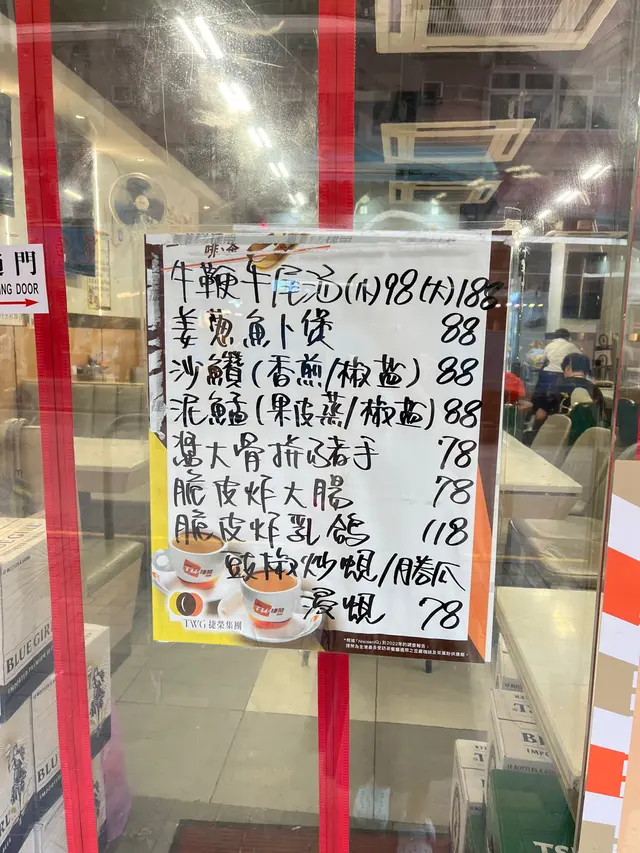 門
NG DOOR
啡
牛鞭牛尾汤(小)98(大)188
姜葱魚卜煲 88
沙鑽(香煎/椒盐) 88
泥鯭(果皮蒸/椒盐) 88
醬大骨拼豬手 78
脆皮炸大腸 78
脆皮炸乳鴿 118
豉椒炒蜆/勝瓜
浸蜆 78
TWG 捷榮集團
BLUE GIR
BLUE